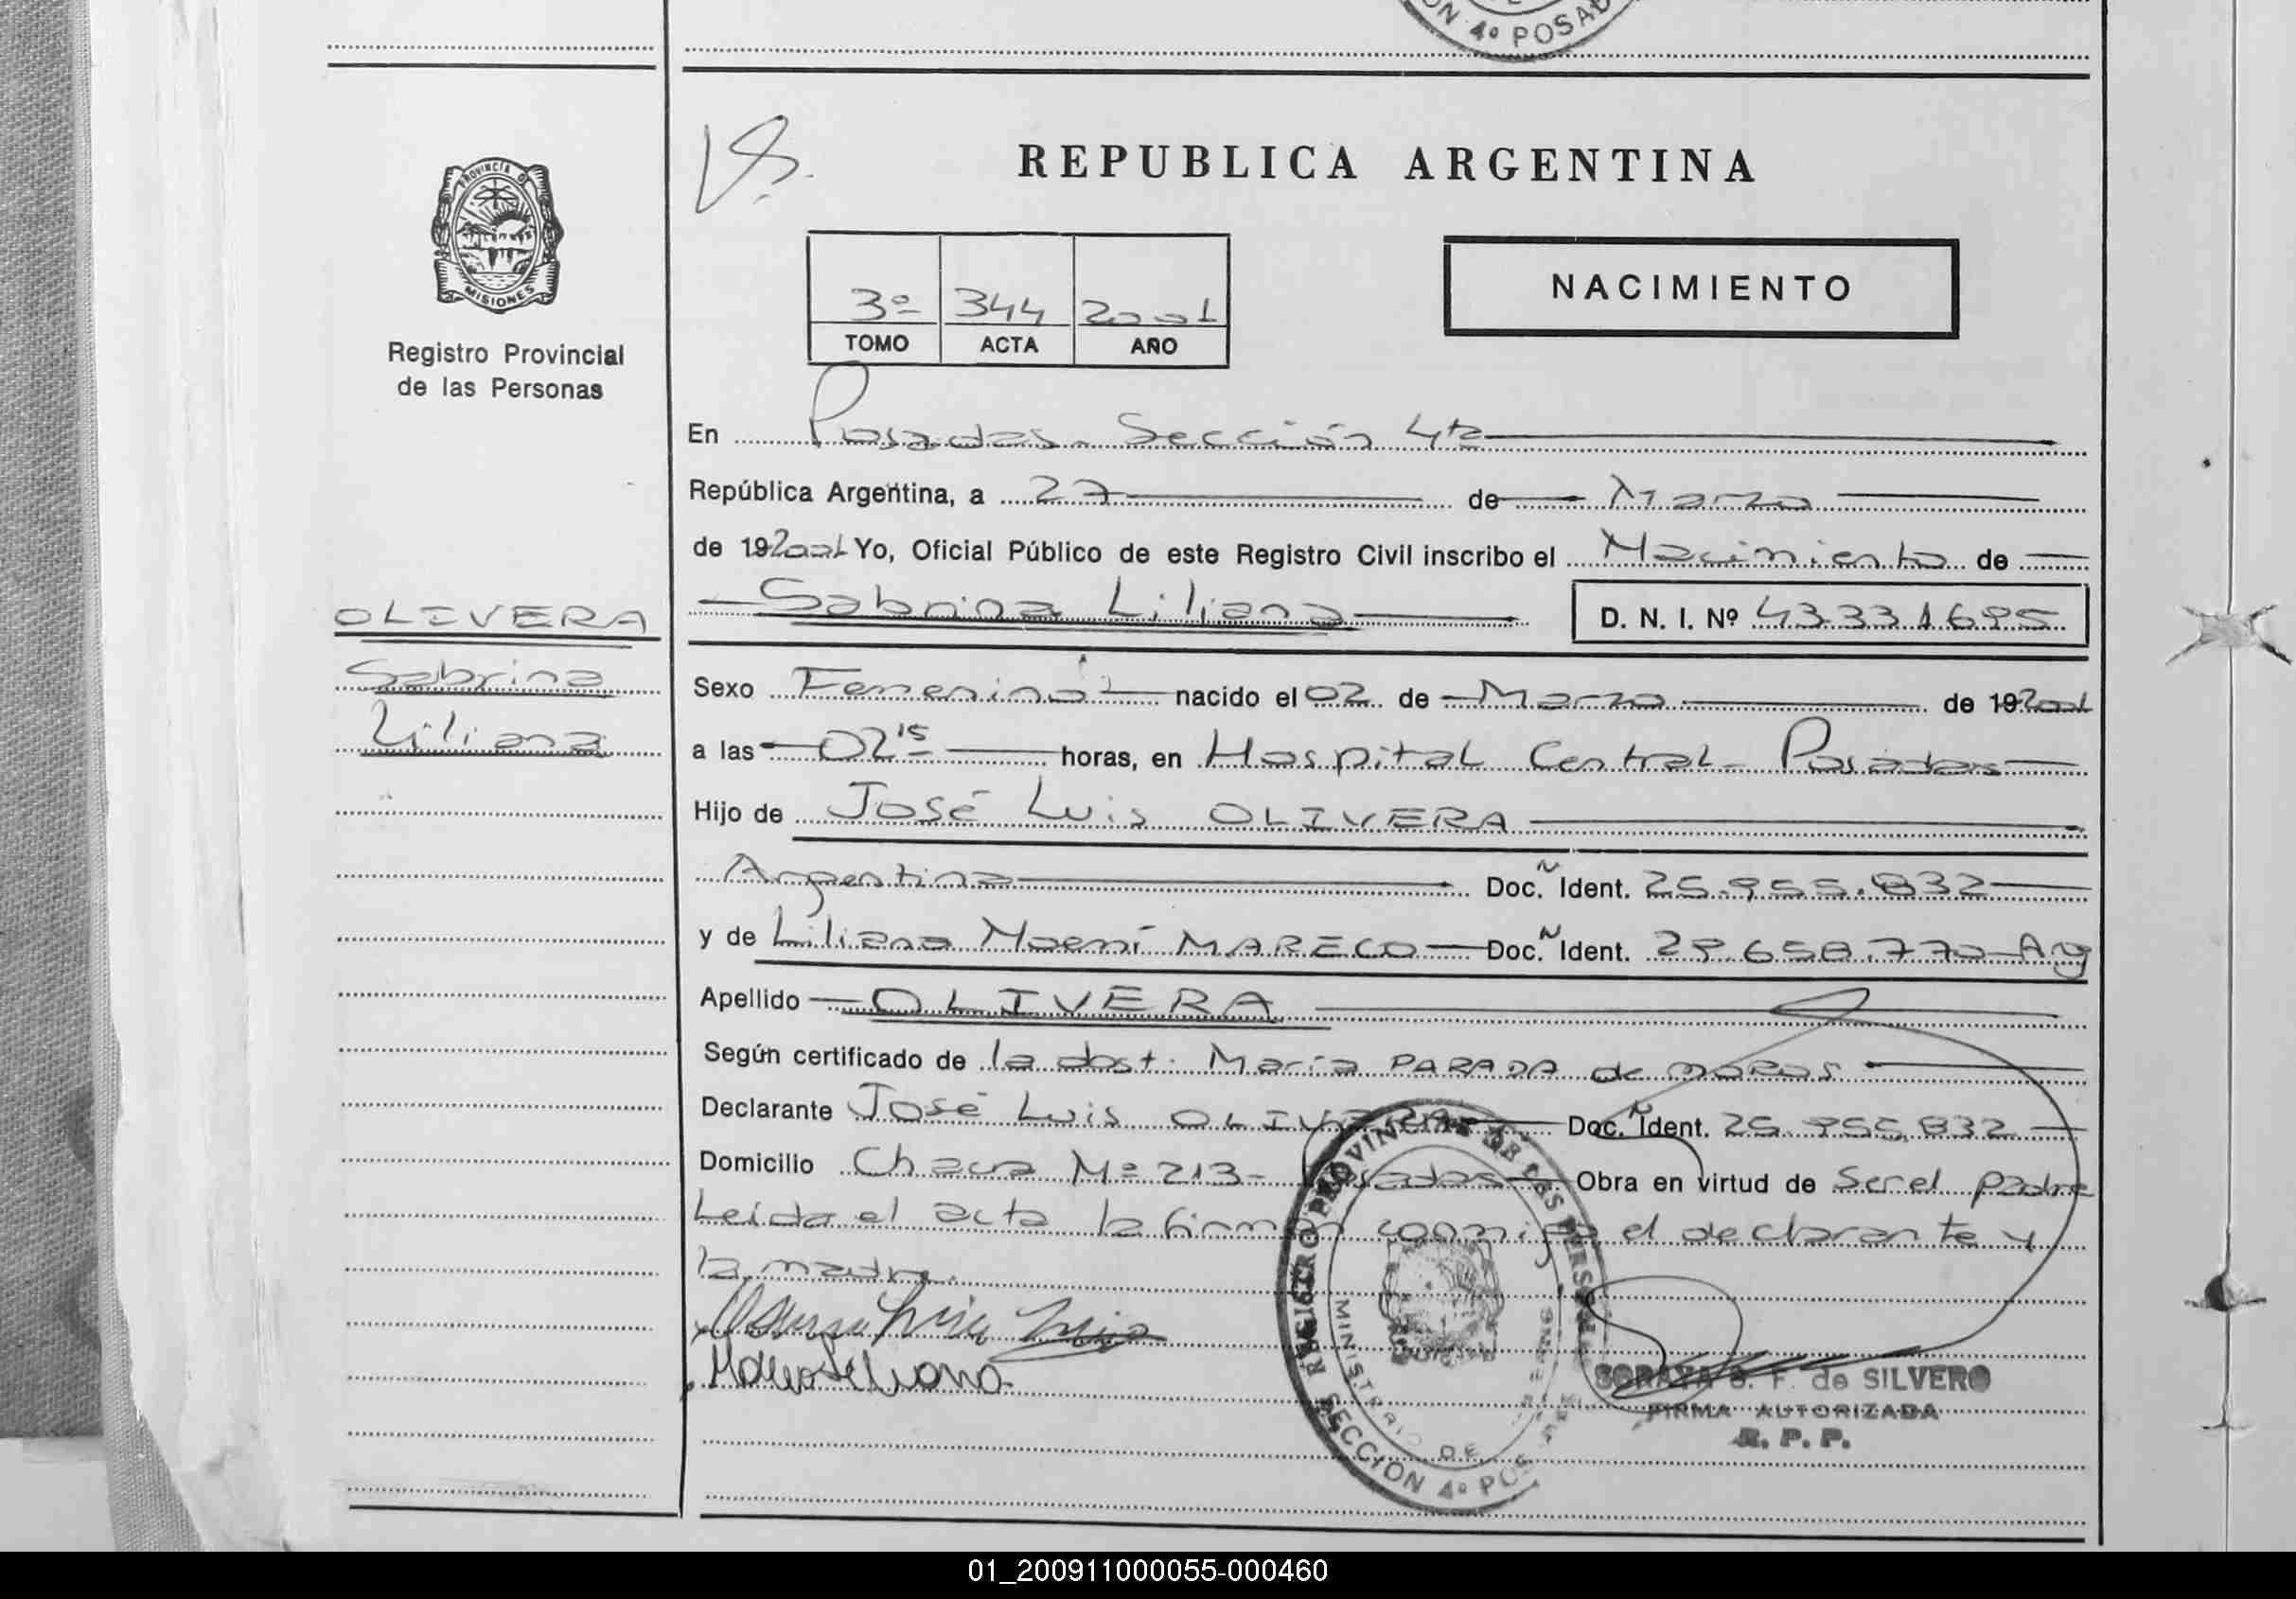 ON 4º POSAD
PROVINCIA D
MISIONES
Registro Provincial
de las Personas
OLIVERA
Sabrina
Liliana
REPUBLICA ARGENTINA
3º 344 2001
TOMO ACTA AÑO
NACIMIENTO
En Posadas - Sección 4ta
República Argentina, a 27 de Marzo
de 192001 Yo, Oficial Público de este Registro Civil inscribo el Nacimiento de
Sabrina Liliana D. N. I. Nº 43331695
Sexo Femenino nacido el 02 de Marzo de 192001
a las 02 15 horas, en Hospital Central - Posadas
Hijo de José Luis OLIVERA
Argentina Doc. N Ident. 25.955.832
y de Liliana Noemí MARECO Doc. N Ident. 29.658.770 Arg
Apellido OLIVERA
Según certificado de la obst. María PARADA de
Declarante José Luis OLIVERA Doc. N Ident. 25.955.832
Domicilio Chacra Nº 213 - Posadas Obra en virtud de Ser el padre
Leida el acta la firman conmigo el declarante y
la madre.
REGISTRO PROVINCIAL DE LAS PERSONAS
MINISTERIO DE
SECCION 4º POS
SORAYA S. F. de SILVERO
FIRMA AUTORIZADA
R. P. P.
01_200911000055-000460